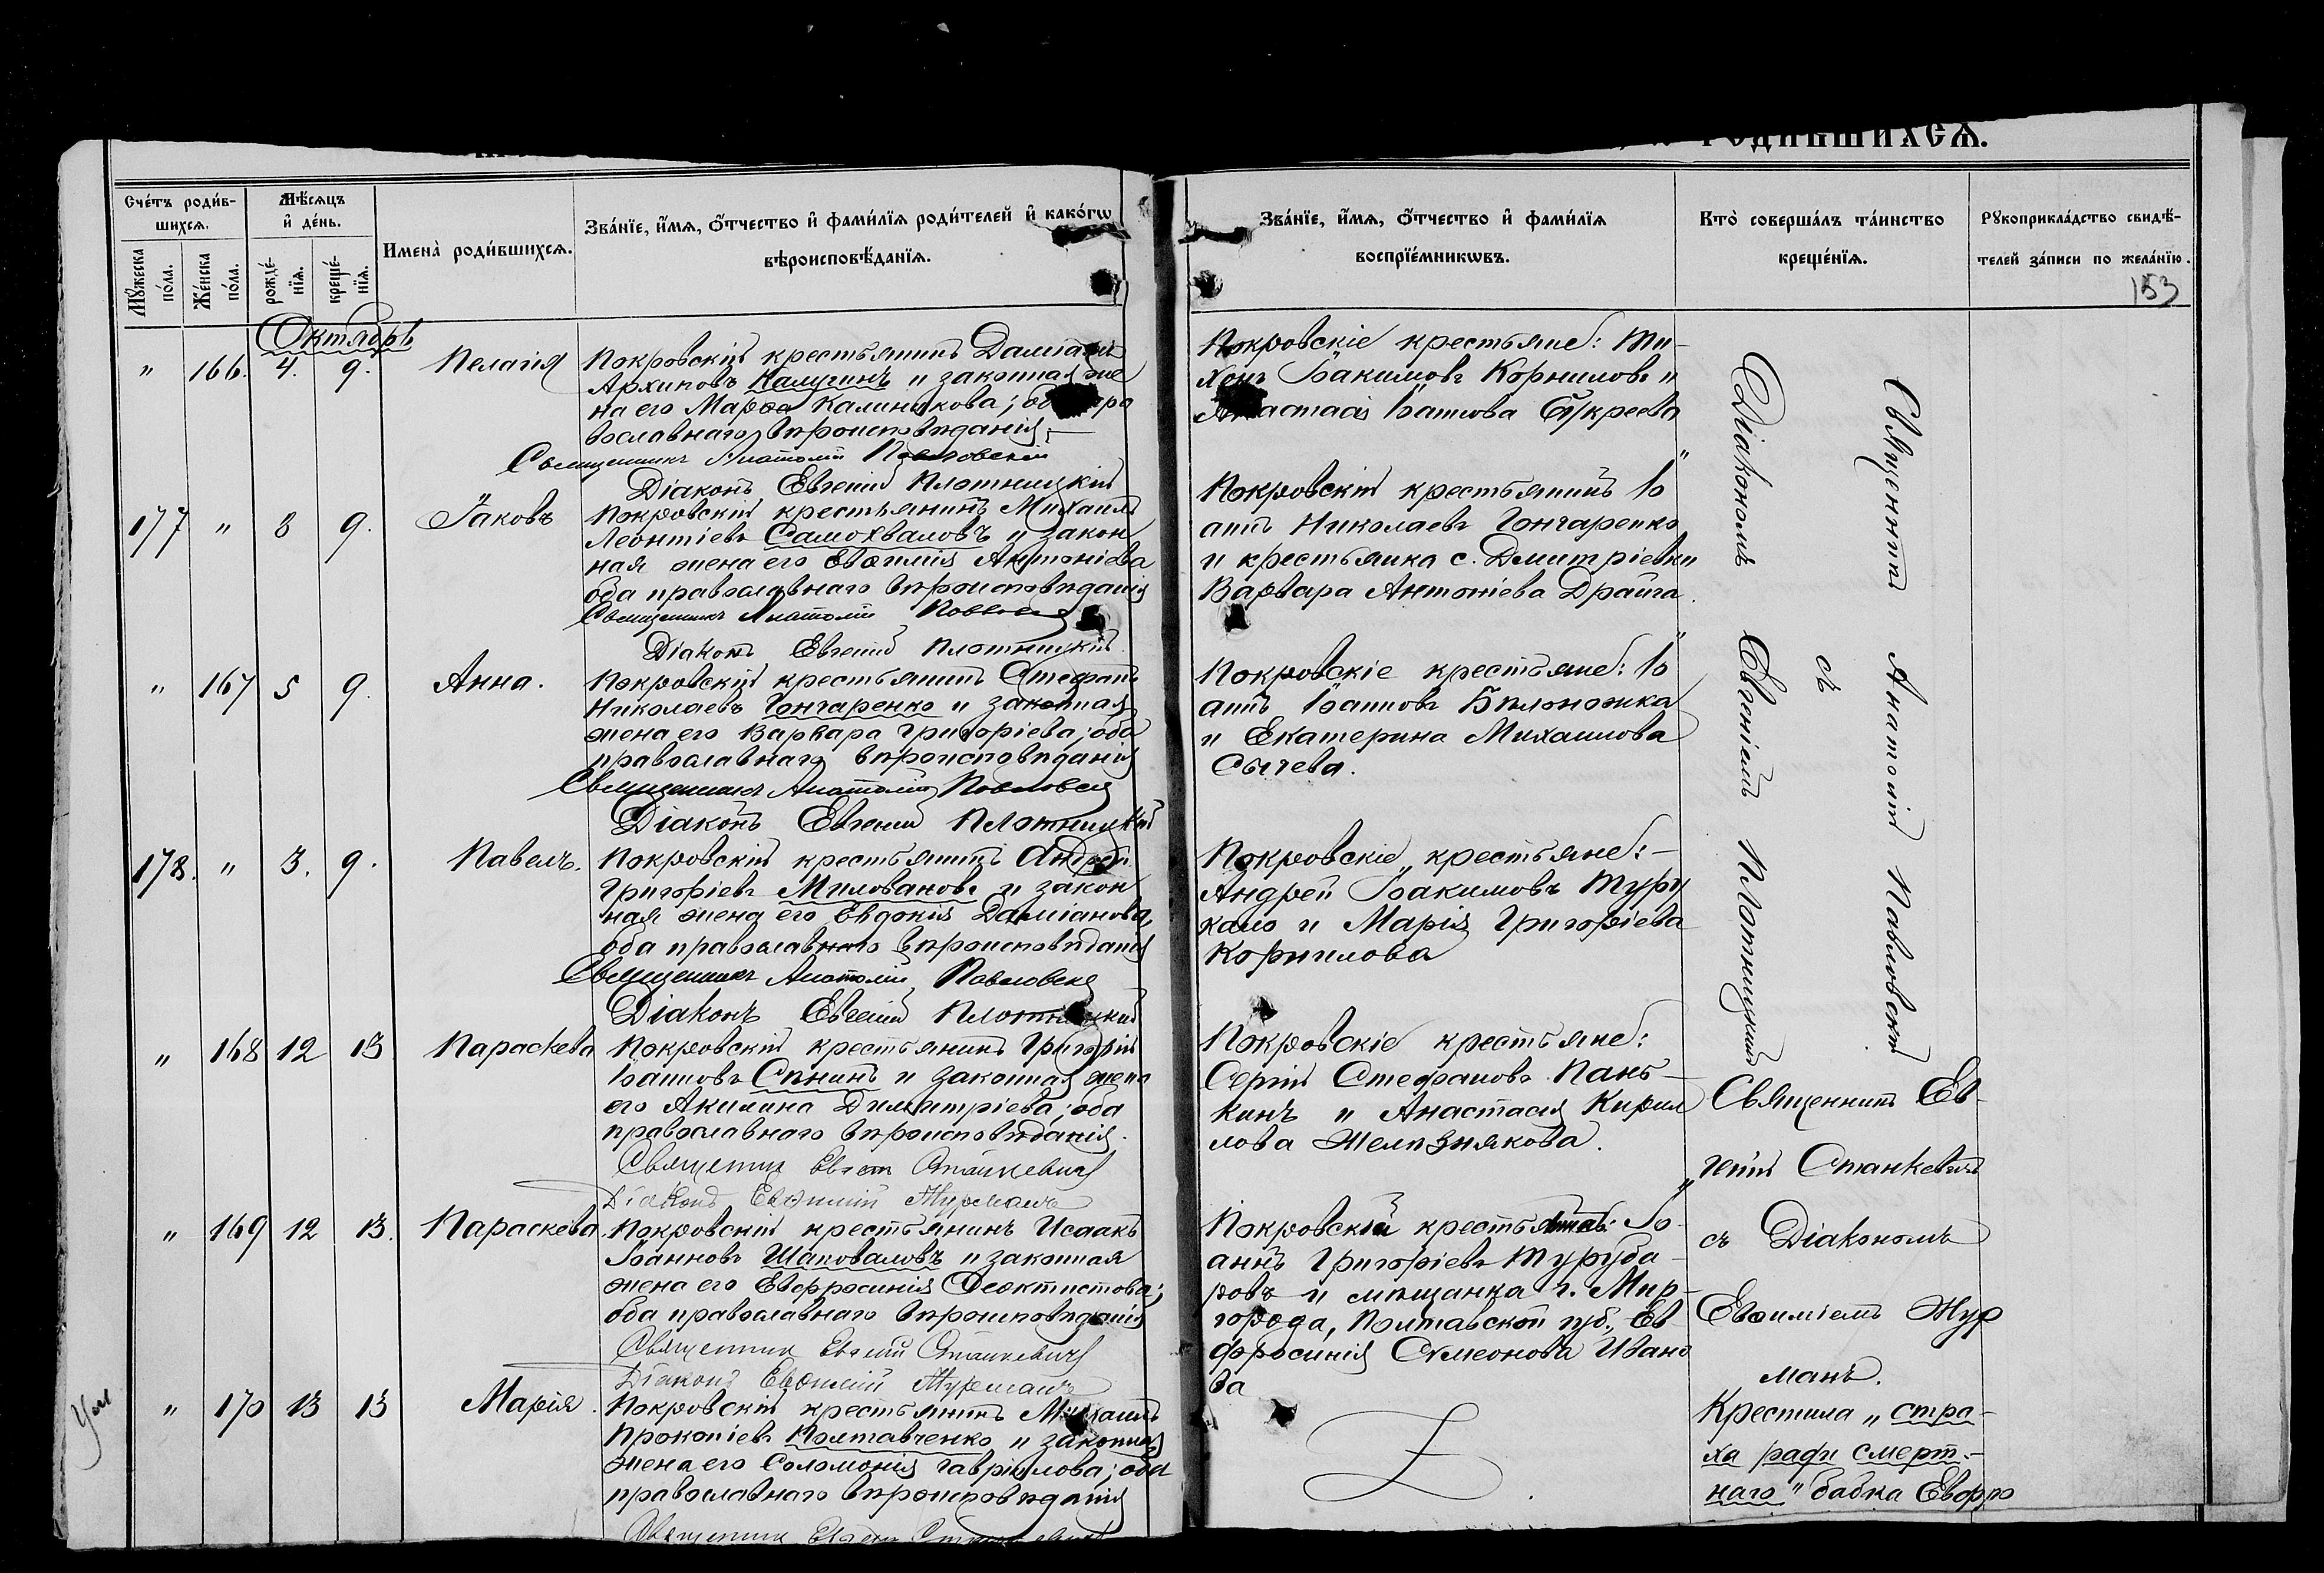 РОДИВШИХСѦ.
Счетъ родив-
шихсѧ.
Мѣсѧцъ
и день.
Мужеска
пола.
Женска
пола.
рожде-
нїѧ.
креще-
нїѧ.
Имена родившихсѧ.
Званїе, имѧ, отчество и фамилїѧ родителей и какогѡ
вѣроисповѣданїѧ.
Званїе, имѧ, отчество и фамилїѧ
воспрїемникѡвъ.
Кто совершалъ таинство
крещенїѧ.
Рукоприкладство свидѣ-
телей записи по желанїю.
153
Октябрь
" 166. 4. 9. Пелагія
Покровскій крестьянинъ Даміанъ
Архиповъ Калугинъ и законная же
на его Марѳа Калинникова; оба пра
вославнаго вѣроисповѣданія
Священникъ Анатолій Павловскій
Діаконъ Евгеній Плотницкій
Покровскіе крестьяне: Ти-
хонъ Іоакимовъ Корниловъ и
Анастасія Іоаннова
177 " 8 9. Іаковъ
Покровскій крестьянинъ Михаилъ
Леонтіевъ Самохваловъ и закон
ная жена его Евѳимія Антоніева
оба православнаго вѣроисповѣданія
Священникъ Анатолій Павловскій
Діаконъ Евгеній Плотницкій
Покровскій крестьянинъ Іо
аннъ Николаевъ Гончаренко
и крестьянка с. Дмитріевки
Варвара Антоніева Драига.
" 167 5 9. Анна.
Покровскій крестьянинъ Стефанъ
Николаевъ Гончаренко и законная
жена его Варвара Григоріева; оба
православнаго вѣроисповѣданія
Священникъ Анатолій Павловскій
Діаконъ Евгеній Плотницкій
Покровскіе крестьяне: Іо
аннъ Іоанновъ Бѣлоножка
и Екатерина Михаилова
Сычева.
178. " 3. 9. Павелъ.
Покровскій крестьянинъ Андрей
Григоріевъ Миловановъ и закон
ная жена его Евдокія Даміанова,
оба православнаго вѣроисповѣданія
Священникъ Анатолій Павловскій
Діаконъ Евгеній Плотницкій
Покровскіе крестьяне:-
Андрей Іоакимовъ Туру
кало и Марія Григоріева
Корнилова
Священникъ Анатолій Павловскій
съ
Діакономъ Евгеніемъ Плотницкимъ
" 168 12 13 Параскева
Покровскій крестьянинъ Григорій
Іоанновъ Спнинъ и законная жена
его Акилина Димитріева; оба
православнаго вѣроисповѣданія.
Священник Евген Станкевич
Діаконъ Евѳимій Журманъ
Покровскіе крестьяне:
Сергій Стефановъ Пань-
кинъ и Анастасія Кирил
лова Желѣзнякова.
Священникъ Ев-
геній Станкевичъ
съ Діакономъ
Евѳиміемъ Жур
манъ.
" 169 12 13. Параскева
Покровскій крестьянинъ Исаакъ
Іоанновъ Шаповаловъ и законная
жена его Евфросинія Ѳеоктистова;
оба православнаго вѣроисповѣданія
Священник Евгеній Станкевич
Діаконъ Евѳимій Журманъ
Покровскій крестьянинъ: Іо-
аннъ Григоріевъ Туруба-
ровъ и мѣщанка г. Мир-
города, Полтавской губ., Ев
фросинія Симеонова Ивано
ва
Ум
" 170 13 13 Марія.
Покровскій крестьянинъ Михаилъ
Прокопіевъ Полтавченко и законная
жена его Соломонія Гавріилова; оба
православнаго вѣроисповѣданія
Священник Евгени Станкевич
Крестила "стра-
ха ради смерт-
наго" бабка Евфро